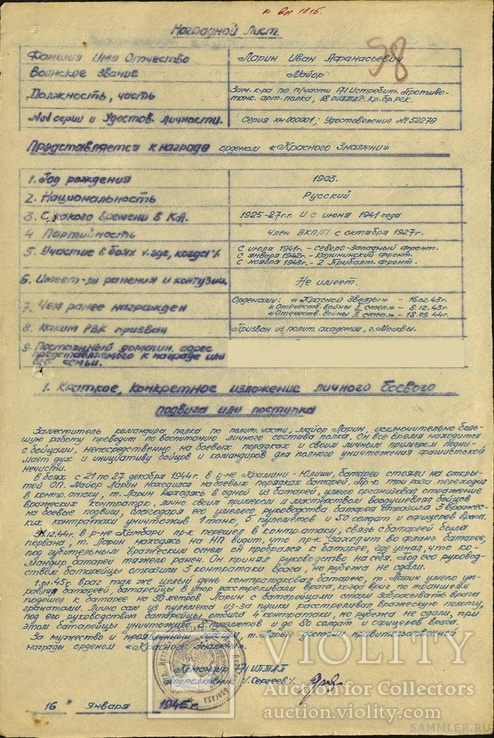 к вл 1815.
Наградной Лист.
98
Фамилия Имя Отчество Ларин Иван Афанасьевич
Воинское звание Майор
Должность, часть Зам. к-ра по п/части 171 Истребит. Противо-
танк. арт. полка,
№№ серии и Удостов. личности. Серия хн 000001; Удостоверение № 52279
Представляется к награде орденом «Красного Знамени»
1. Год рождения 1903.
2. Национальность Русский
3. С какого времени в К.А. 1925-27 г.г. и с июня 1941 года
4 Партийность член ВКП/б/ с октября 1927г.
5. Участие в боях и где, когда с июля 1941г. - Северо-Западный фронт.
с января 1942г - Калининский фронт.
с ноября 1943г. - 2 Прибалт. фронт.
6. Имеет-ли ранения и контузии. Не имеет.
7. Чем ранее награжден Орденами: «Красной Звезды» - 16.02.43г.
«Отечеств. войны II степ.» - 8.12.43г.
«Отечеств. войны I степ.» - 18.09.44г.
8. Каким РВК призван Призван из полит. академии, г. Москвы.
9. Постоянный домашн. адрес
представляемого к награде или
его семьи.
1. Краткое, конкретное изложение личного боевого
подвига или поступка
Заместитель командира полка по полит. части, майор Ларин, исключительно боль-
шую работу проводит по воспитанию личного состава полка. Он все время находится
с бойцами, непосредственно на боевых порядках и своим личным примером подни-
мает дух и инициативу бойцов и командиров для полного уничтожения фашистской
нечисти.
В боях с 21 по 27 декабря 1944г. в р-не батареи стояли на откры-
той ОП. Майор Ларин находился на боевых порядках батарей. Пр-к три раза переходил
в контр. атаку, т. Ларин находясь в одной из батарей, умело организовал отражение
вражеских контратак, лично своим примером и мужеством воодушевлял бойцов
на боевые подвиги, благодаря его умелого руководства батарея отразила 3 вражес-
ких контратаки уничтожив 1 танк, 5 пулеметов и 50 солдат и офицеров врага.
12.44г. в р-не пр-к перешел в контр. атаку, связь с батареей была
порвана, т. Ларин находясь на НП видит, что пр-к заходит во фланг батареи,
под губительным вражеским огнем он пробрался к батарее, где узнал, что ко-
мандир батареи тяжело ранен. Он принял руководство на себя. Под его руковод-
ством батарейцы отразили 3 контратаки врага, но рубежа не сдали.
1.01.45г. враг так же целый день контратаковал батарею, т. Ларин умело уп-
равлял батареей, батарейцы в упор расстреливали врага, когда враг по траншеям
подошел к батарее на 30 метров Ларин с батарейцами стали забрасывать врага
гранатами. Лично сам из пулемета из-за пушки расстреливал вражескую пехоту,
под его руководством батарейцы, отбили 4 контратаки, но рубежа не сдали, при
этом батарейцы уничтожили пулеметов и до 80 солдат и офицеров врага.
За мужество и т. Ларин достоин правительственной
награды орденом «Красного Знамени».
Командир 171 ИПТАП
подполковник /Сергеев/.
16 Января 1945 г.
VIOLITY
Auction for Collectors
auction.violity.com
SAMMLER.RU